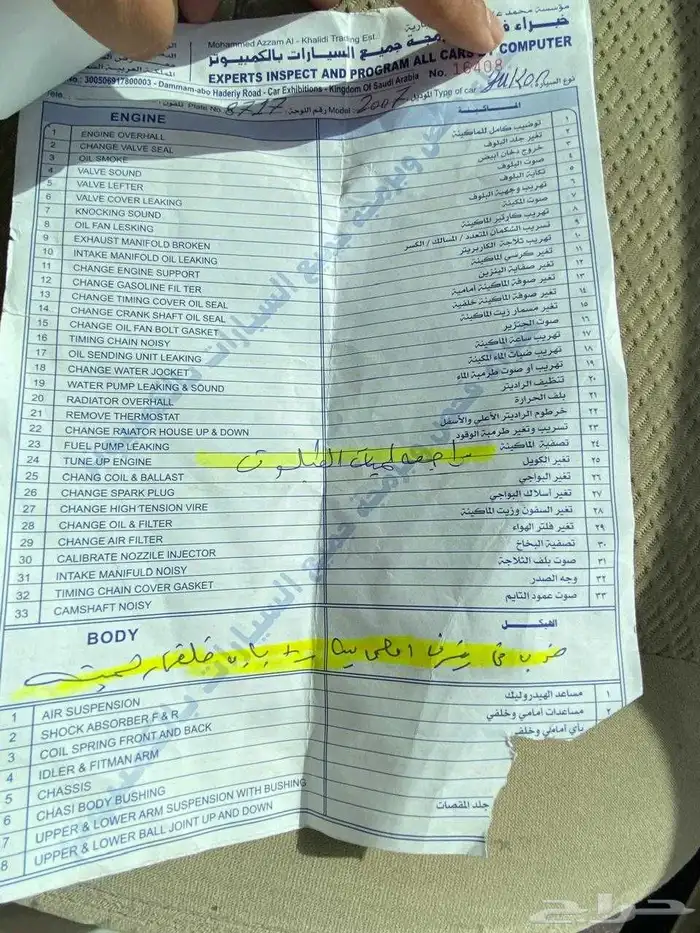 مؤسسة محمد
Mohammed Azzam Al - Khalidi Trading Est.
خبراء
برمجة جميع السيارات بالكمبيوتر
EXPERTS INSPECT AND PROGRAM ALL CARS BY COMPUTER
300506917800003 - Dammam-abo Haderiy Road - Car Exhibitions - Kingdom Of Saudi Arabia No. 16408
Plate No. 8717 رقم اللوحة: Model: 2007 الموديل: Type of car: yukon نوع السيارة:
ENGINE الماكينة
1 ENGINE OVERHALL توضيب كامل للماكينة ١
2 CHANGE VALVE SEAL تغير جلد البلوف ٢
3 OIL SMOKE خروج دخان ابيض ٣
4 VALVE SOUND صوت البلوف ٤
5 VALVE LEFTER تكاية البلوف ٥
6 VALVE COVER LEAKING تهريب وجهية البلوف ٦
7 KNOCKING SOUND صوت المكينة ٧
8 OIL FAN LESKING تهريب كارتير الماكينة ٨
9 EXHAUST MANIFOLD BROKEN تسريب الشكمان المتعدد / المسالك / الكسر ٩
10 INTAKE MANIFOLD OIL LEAKING تهريب ثلاجة الكاربريتر ١٠
11 CHANGE ENGINE SUPPORT تغير كرسي الماكينة ١١
12 CHANGE GASOLINE FILTER تغير صفاية البنزين ١٢
13 CHANGE TIMING COVER OIL SEAL تغير صوفة الماكينة امامية ١٣
14 CHANGE CRANK SHAFT OIL SEAL تغير صوفة الماكينة خلفية ١٤
15 CHANGE OIL FAN BOLT GASKET تغير مسمار زيت الماكينة ١٥
16 TIMING CHAIN NOISY صوت الجنزير ١٦
17 OIL SENDING UNIT LEAKING تهريب ساعة الماكينة ١٧
18 CHANGE WATER JOCKET تهريب ضيات الماء المكينة ١٨
19 WATER PUMP LEAKING & SOUND تهريب او صوت طرمبة الماء ١٩
20 RADIATOR OVERHALL تنظيف الراديتر ٢٠
21 REMOVE THERMOSTAT بلف الحرارة ٢١
22 CHANGE RAIATOR HOUSE UP & DOWN خرطوم الراديتر الأعلي والأسفل ٢٢
23 FUEL PUMP LEAKING تسريب وتغير طرمبة الوقود ٢٣
24 TUNE UP ENGINE تصفية الماكينة ٢٤
25 CHANG COIL & BALLAST تغير الكويل ٢٥
26 CHANGE SPARK PLUG تغير البواجي ٢٦
27 CHANGE HIGH TENSION VIRE تغير أسلاك البواجي ٢٧
28 CHANGE OIL & FILTER تغير السفون وزيت الماكينة ٢٨
29 CHANGE AIR FILTER تغير فلتر الهواء ٢٩
30 CALIBRATE NOZZLE INJECTOR تصفية البخاخ ٣٠
31 INTAKE MANIFULD NOISY صوت بلف الثلاجة ٣١
32 TIMING CHAIN COVER GASKET وجه الصدر ٣٢
33 CAMSHAFT NOISY صوت عمود التايم ٣٣
BODY الهيكل
1 AIR SUSPENSION مساعد الهيدروليك ١
2 SHOCK ABSORBER F & R مساعدات أمامي وخلفي ٢
3 COIL SPRING FRONT AND BACK ياي أمامي وخلفي
4 IDLER & FITMAN ARM
5 CHASSIS
6 CHASI BODY BUSHING
7 UPPER & LOWER ARM SUSPENSION WITH BUSHING جلد المقصات
8 UPPER & LOWER BALL JOINT UP AND DOWN
حراج